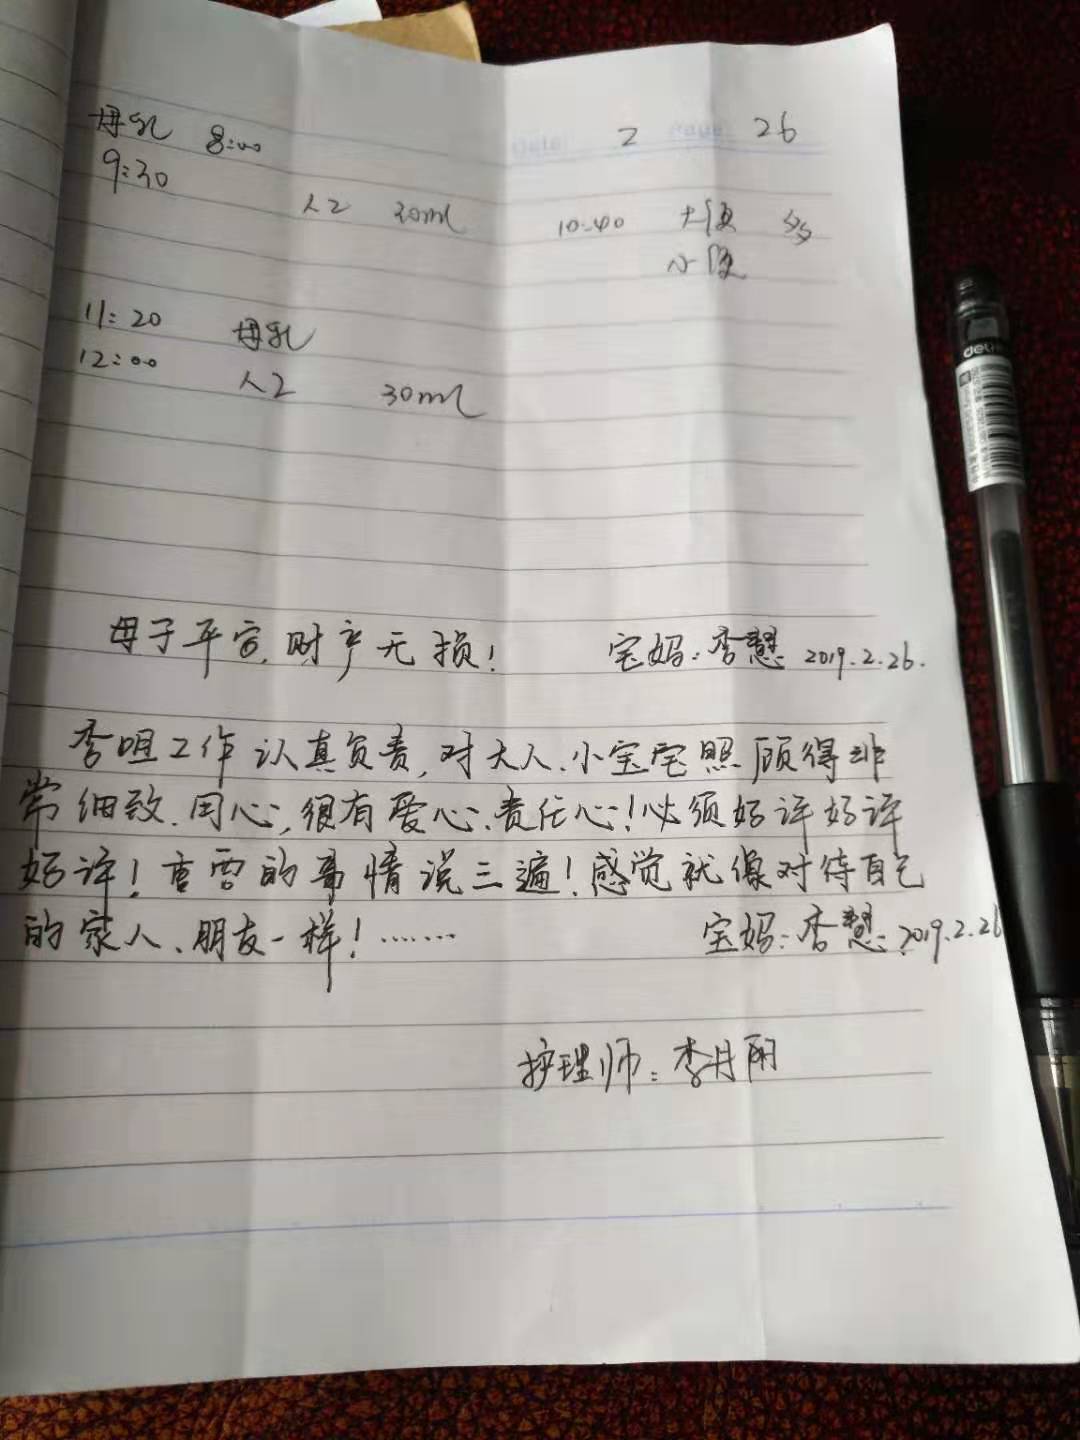 Date: 2 Page: 26
母乳 8:00
9:30
人工 30ml 10:40 大便 多
小便
11:20 母乳
12:00 人工 30ml
母子平安,财产无损! 宝妈:李慧 2019.2.26.
李咀工作认真负责,对大人、小宝宝照顾得非
常细致、用心,很有爱心、责任心!必须好评好评
好评!重要的事情说三遍!感觉就像对待自己
的家人、朋友一样!……. 宝妈:李慧.2019.2.26
护理师:李月丽
deli